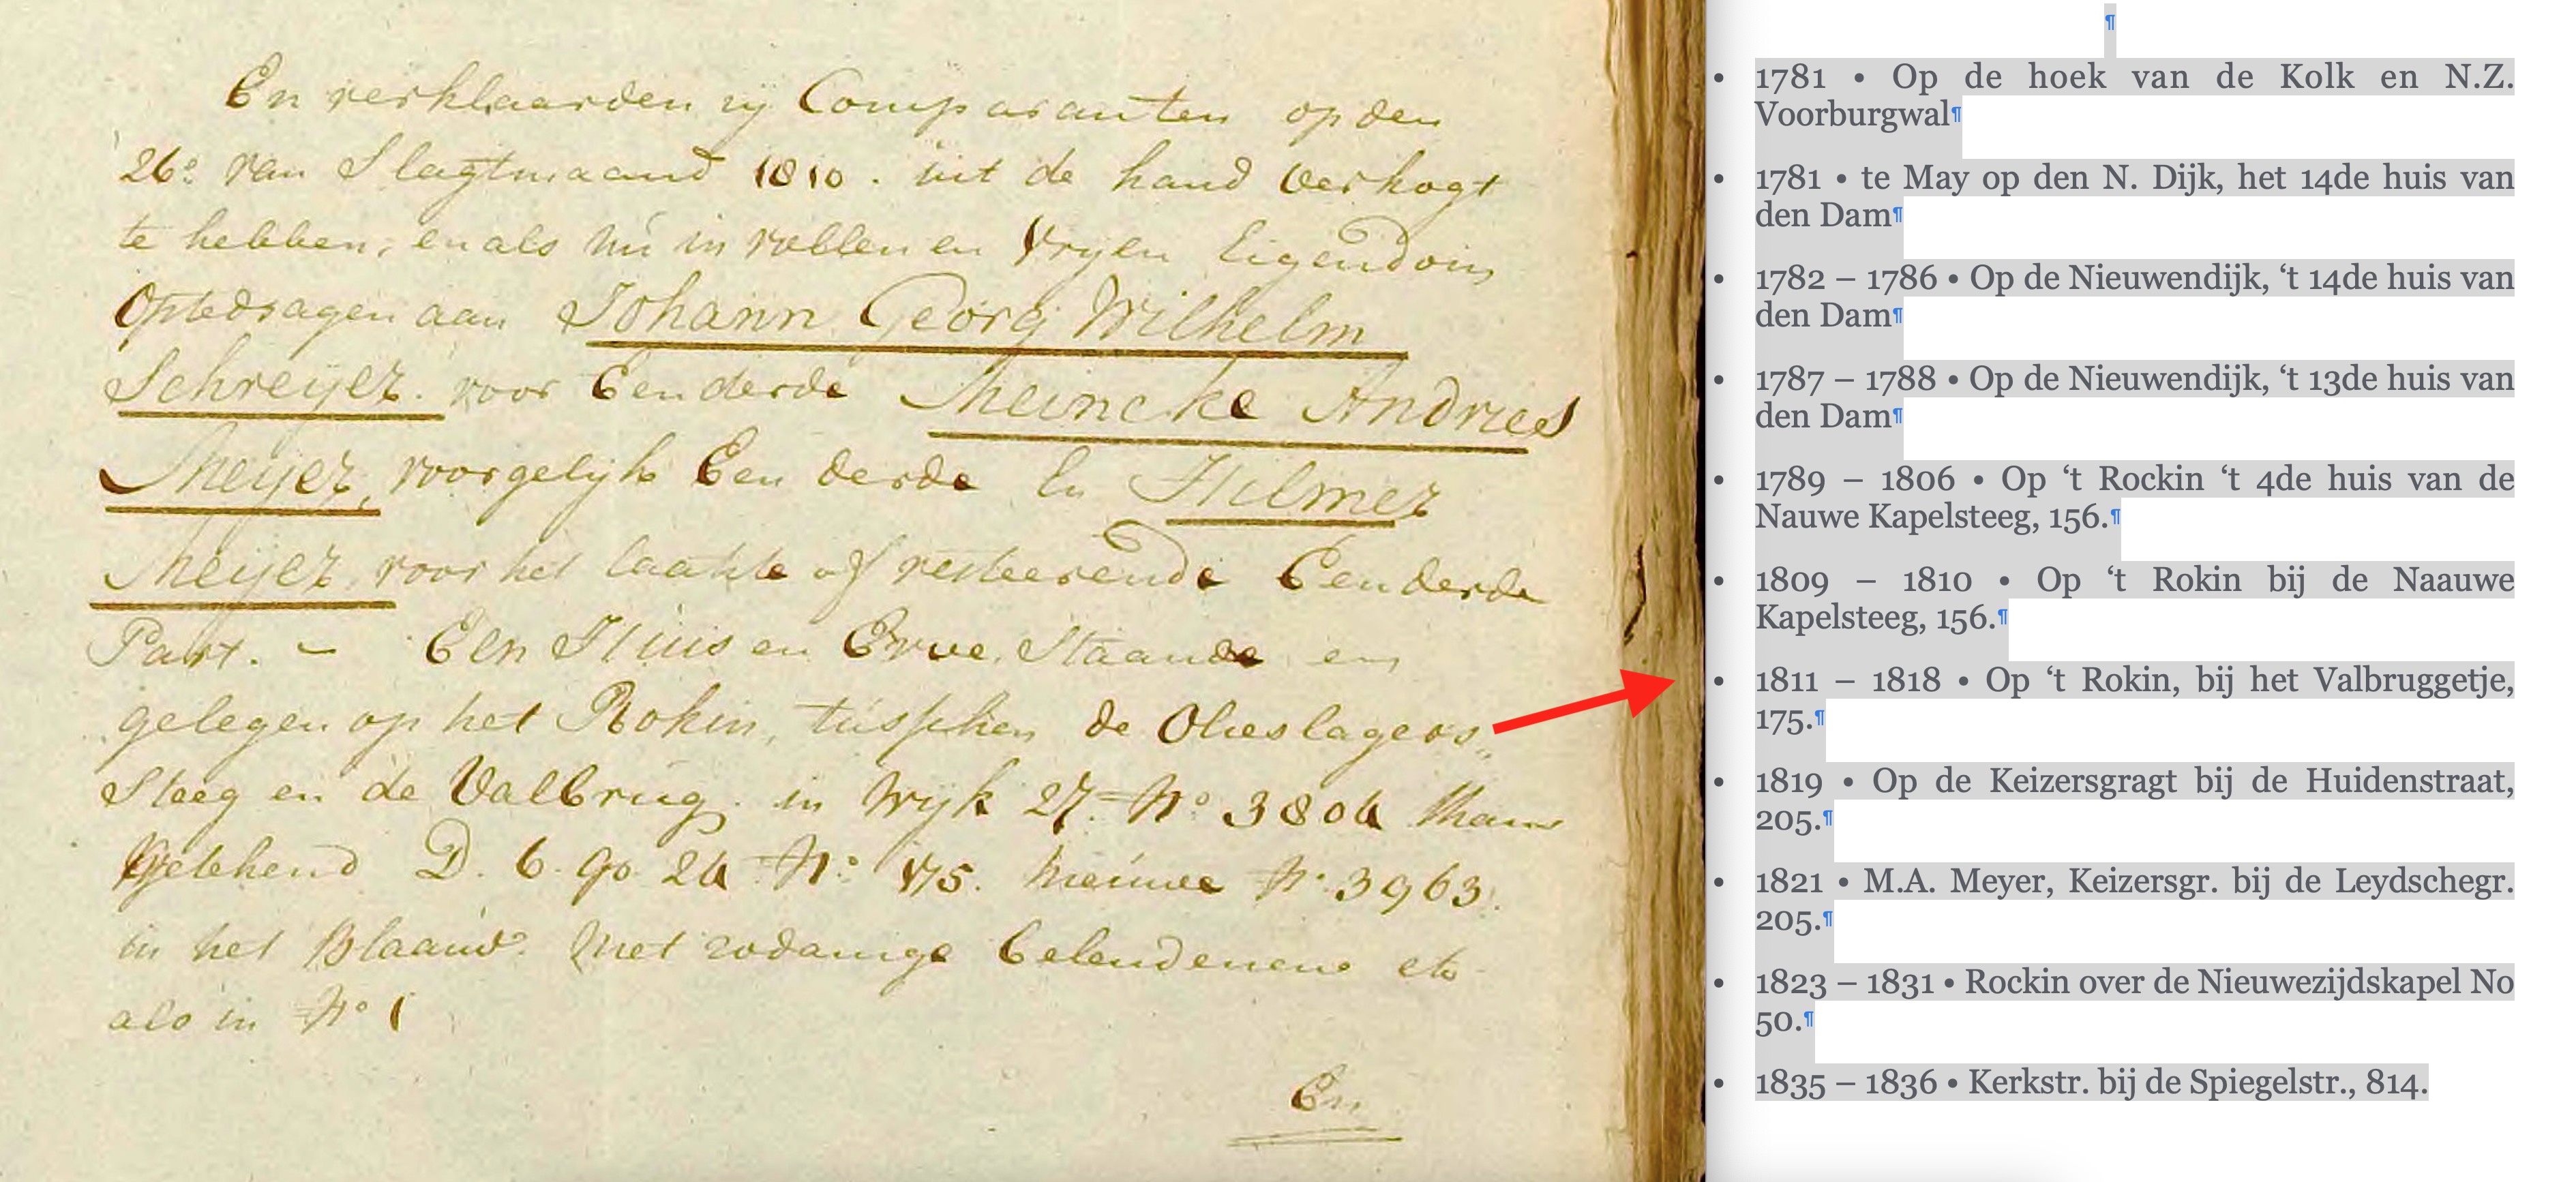 En verklaarden zij Comparanten op den
26e van Slagtmaand 1810. uit de hand verkogt
te hebben, en als nu in vollen en vryen Eigendom
Optedragen aan Johann Georg Wilhelm
Schreijer. voor Een derde Meincke Andries
Meijer, voor gelijk Een derde En Hilmer
Meijer, voor het laatste of resteerende Een derde
Part. - Een Huis en Erve, Staande en
gelegen op het Rokin, tusschen de Olieslagers„
Steeg en de Valbrug. in Wyk 27. No 3804 thans
Getekend D. 6. Qo 24 No: 175. Nieuwe No. 3963.
in het Blaauw. Met zodanige belendenene etc
als in No 1
En
¶
• 1781 • Op de hoek van de Kolk en N.Z.
Voorburgwal¶
• 1781 • te May op den N. Dijk, het 14de huis van
den Dam¶
• 1782 – 1786 • Op de Nieuwendijk, ‘t 14de huis van
den Dam¶
• 1787 – 1788 • Op de Nieuwendijk, ‘t 13de huis van
den Dam¶
• 1789 – 1806 • Op ‘t Rockin ‘t 4de huis van de
Nauwe Kapelsteeg, 156.¶
• 1809 – 1810 • Op ‘t Rokin bij de Naauwe
Kapelsteeg, 156.¶
• 1811 – 1818 • Op ‘t Rokin, bij het Valbruggetje,
175.¶
• 1819 • Op de Keizersgragt bij de Huidenstraat,
205.¶
• 1821 • M.A. Meyer, Keizersgr. bij de Leydschegr.
205.¶
• 1823 – 1831 • Rockin over de Nieuwezijdskapel No
50.¶
• 1835 – 1836 • Kerkstr. bij de Spiegelstr., 814.